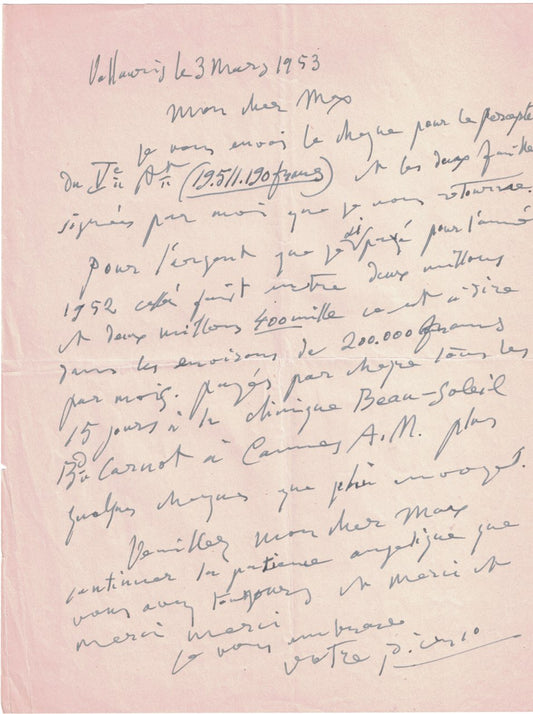 Vallauris le 3 Mars 1953
Mon cher Max
je vous envois le cheque pour le percepte
du Ve Art (19.511.190 francs) et les deux feuilles
signées par moi que je vous retourne.
Pour l'argent que j'ai payé pour l'année
1952 celà fait entre deux millons
et deux millons 400 mille ce et a-dire
dans les environs de 200.000 francs
par mois. payés par cheque tous les
15 jours à la clinique Beau-Soleil
Bd Carnot à Cannes A.M. plus
quelques cheques que j'ai envoyés.
Veuillez mon cher Max
continuer la patience angelique que
vous avez toujours et merci et
merci merci
je vous embrasse
votre Picasso